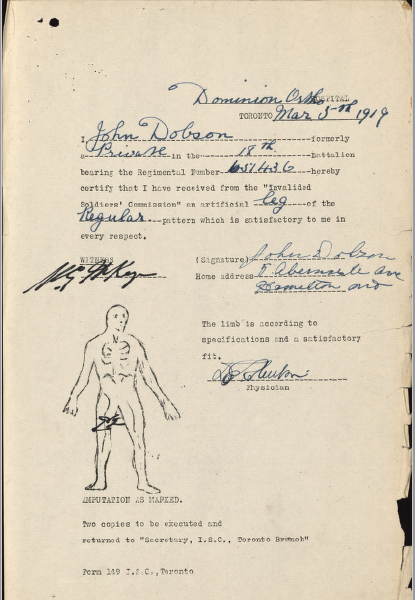 Dominion Ortho HOSPITAL
TORONTO Mar 5th 1919
I John Dobson formerly
a Private in the 18th Battalion
bearing the Regimental Number 651436 hereby
certify that I have received from the "Invalided
Soldiers' Commission" an artificial leg of the
Regular pattern which is satisfactory to me in
every respect.
WITNESS (Signature) John Dobson
Home address Ave
Hamilton Ont
The limb is according to
specifications and a satisfactory
fit.
Physician
AMPUTATION AS MARKED.
Two copies to be executed and
returned to "Secretary, I.S.C., Toronto Branch"
Form 149 I.S.C., Toronto